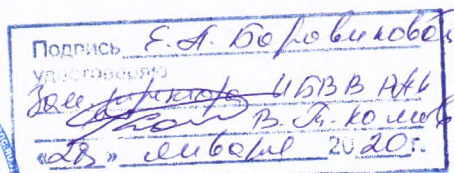 Подпись Е.А. Боровиковой
удостоверяю
Зам. директора ИБВВ РАН
В.Т. Комов
«28» января 2020г.